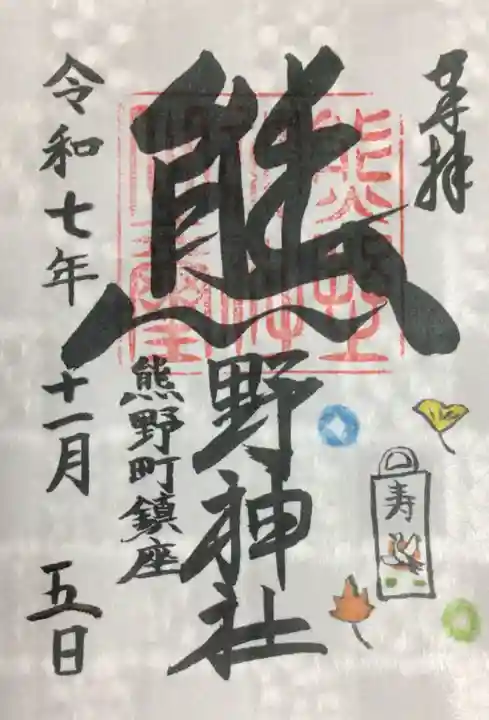 奉拝
熊野神社
熊野町鎮座
令和七年 十一月 五日
寿